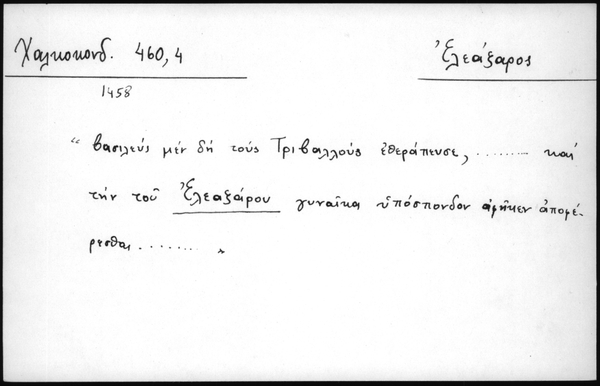 Χαλκοκονδ. 460,4
Ἐλεάζαρος
1458
“ βασιλεύς μέν δή τούς Τριβαλλούς ἐθεράπευσε, ........ καί
τήν τοῦ Ἐλεαζάρου γυναῖκα ὑπόσπονδον ἀφῆκεν ἀποφέ-
ρεσθαι ........ „